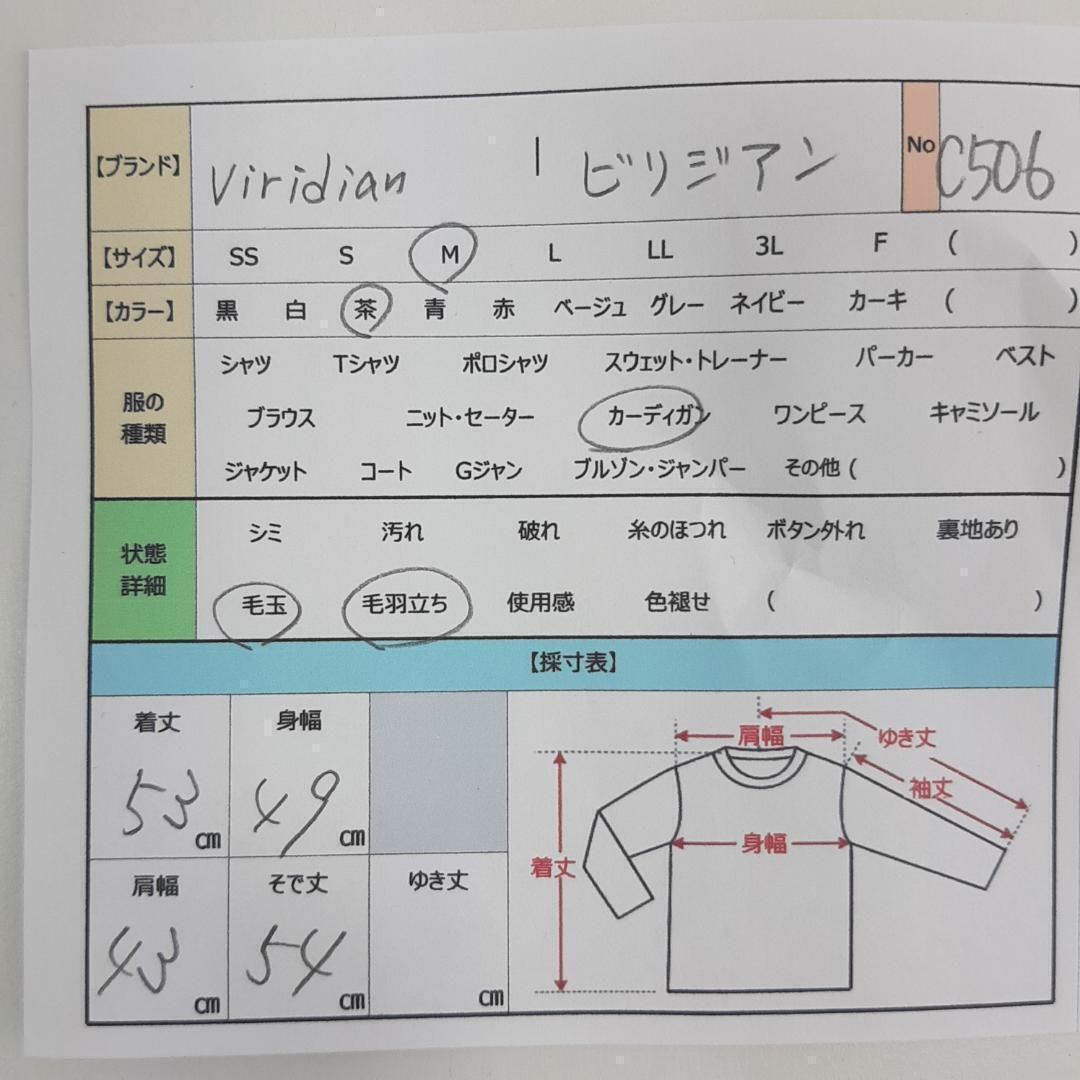 【ブランド】 Viridian | ビリジアン No C506
【サイズ】 SS S M L LL 3L F ( )
【カラー】 黒 白 茶 青 赤 ベージュ グレー ネイビー カーキ ( )
服の種類
シャツ Tシャツ ポロシャツ スウェット・トレーナー パーカー ベスト
ブラウス ニット・セーター カーディガン ワンピース キャミソール
ジャケット コート Gジャン ブルゾン・ジャンパー その他 ( )
状態詳細
シミ 汚れ 破れ 糸のほつれ ボタン外れ 裏地あり
毛玉 毛羽立ち 使用感 色褪せ ( )
【採寸表】
着丈 身幅
53 cm 49 cm
肩幅 そで丈 ゆき丈
43 cm 54 cm cm
肩幅 ゆき丈
袖丈
身幅
着丈